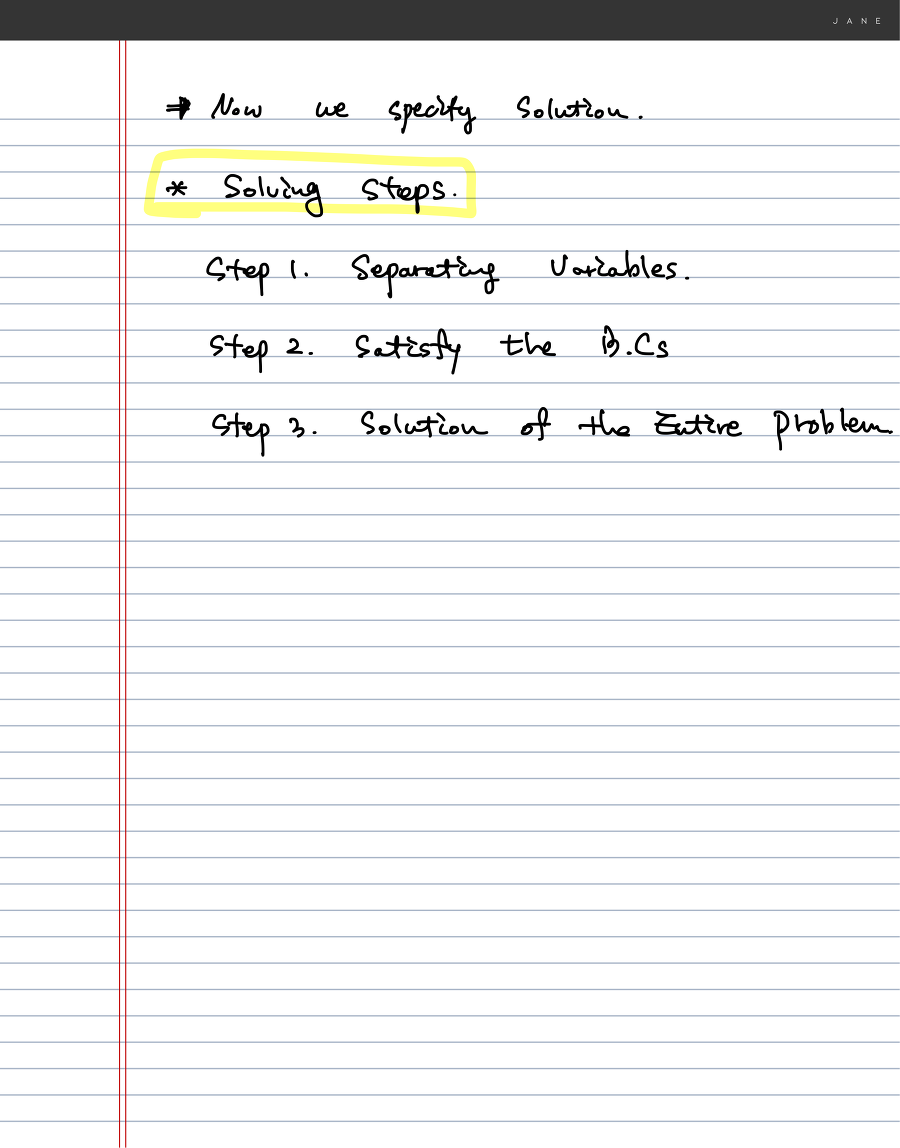 JANE
⇒ Now we specify Solution.
* Solving Steps.
Step 1. Separating Variables.
Step 2. Satisfy the B.Cs
Step 3. Solution of the Entire Problem.